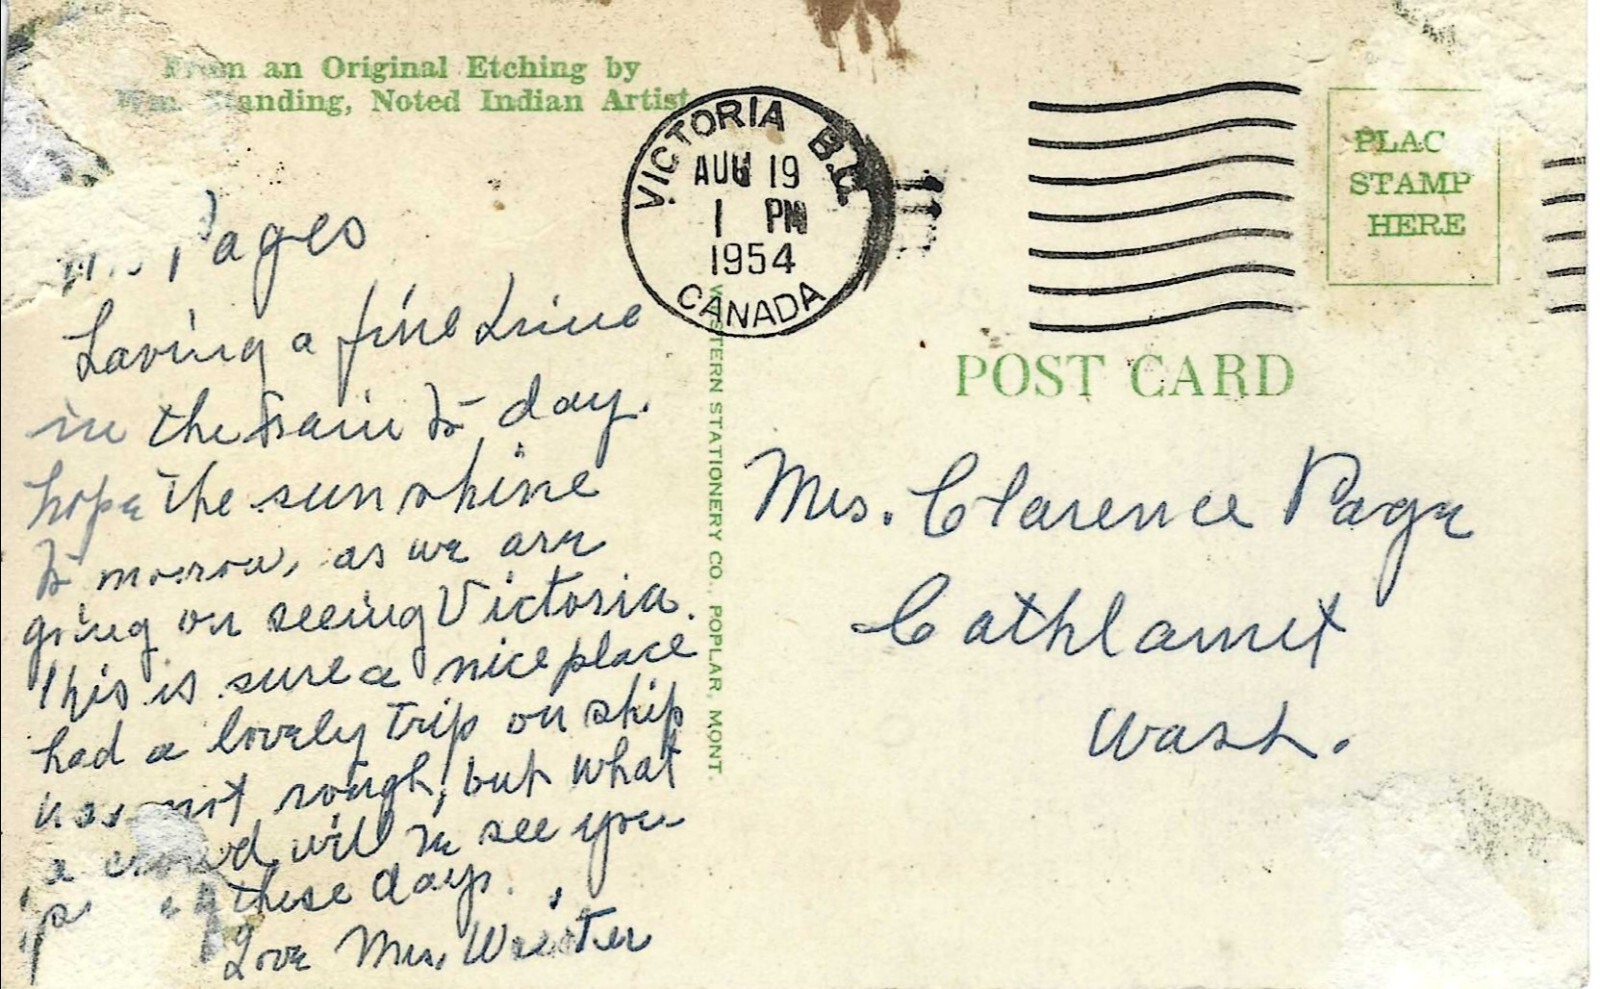 an Original Etching by
Standing, Noted Indian Artist
VICTORIA B.C.
AUG 19
1 PM
1954
CANADA
PLAC
STAMP
HERE
POST CARD
WESTERN STATIONERY CO., POPLAR, MONT.
Pages
Having a fine time
in the rain to-day.
hope the sun shine
to morrow, as we are
going on seeing Victoria.
This is sure a nice place
had a lovely trip on ship
was not rough, but what
a crowd, will see you
these days.
Love Mrs.
Mrs. Clarence Page
Cathlamet
Wash.